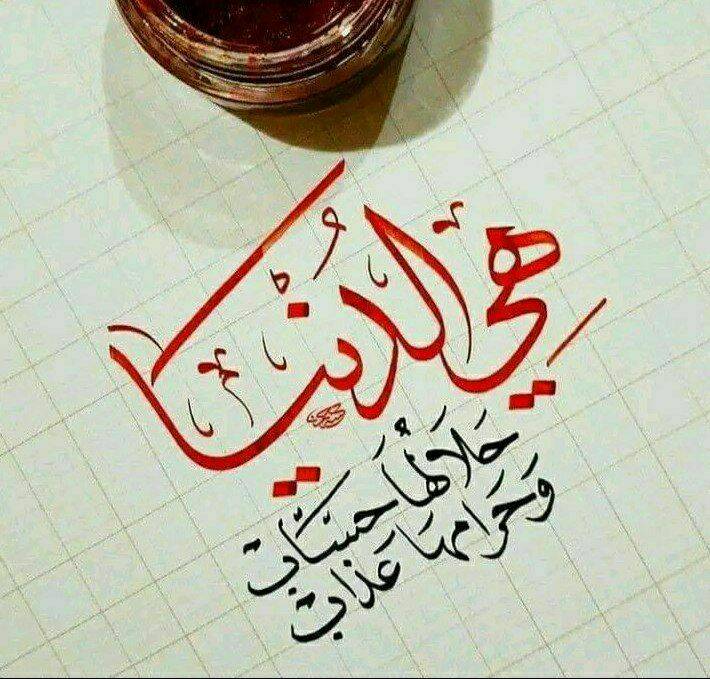 هِيَ الدُنْيَا
حَلَالُهَا حِسَابٌ
وَحَرَامهَا عَذَابٌ